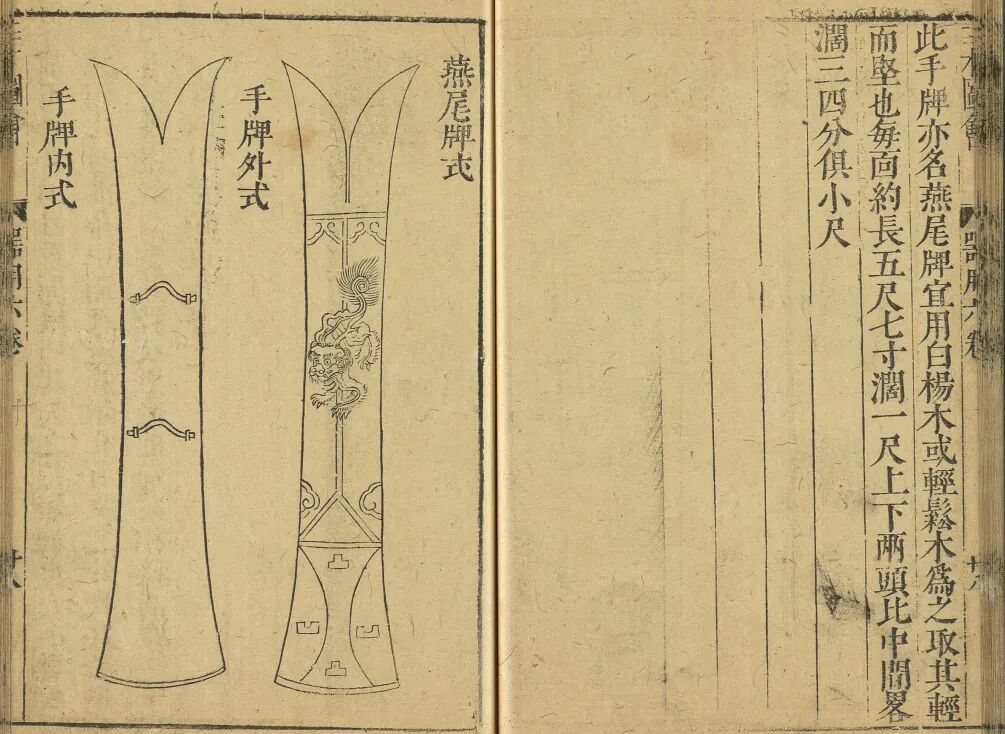 三才圖會 器用六卷 廿八
此手牌亦名燕尾牌宜用白楊木或輕鬆木爲之取其輕
而堅也每面約長五尺七寸濶一尺上下兩頭比中間畧
濶三四分俱小尺
燕尾牌式
手牌外式
手牌内式
器用六卷 廿八